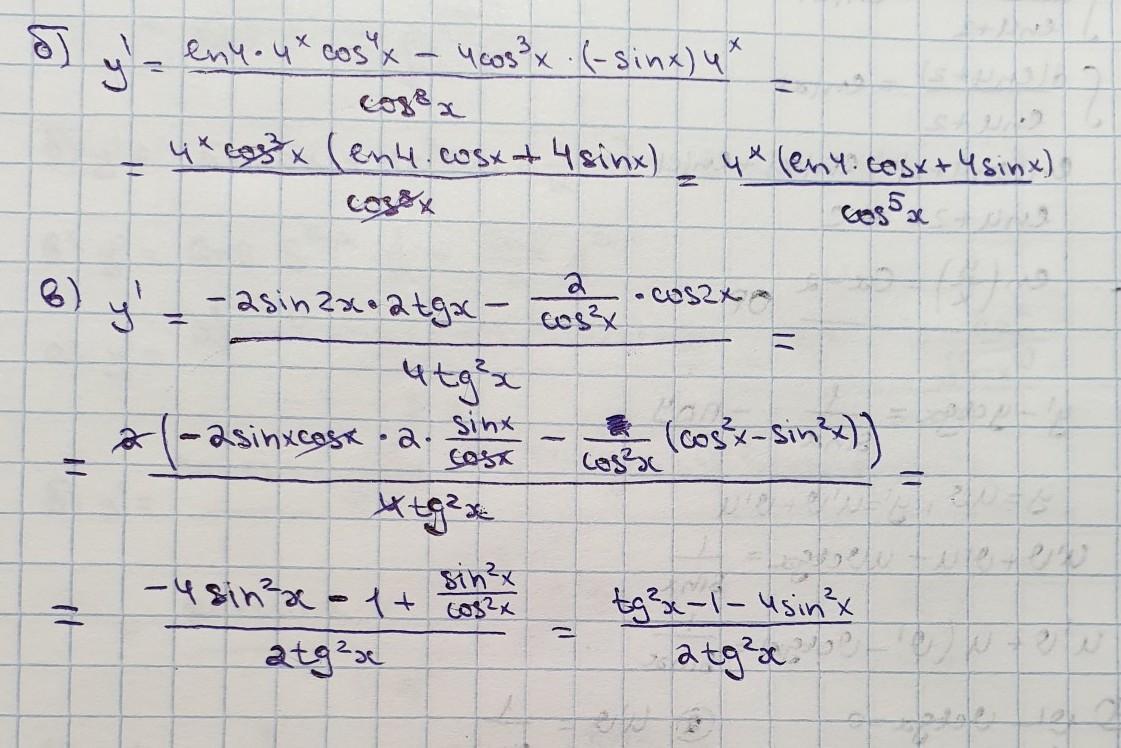 б) y' = (ln4·4ˣ cos⁴x − 4cos³x·(−sinx)4ˣ)/(cos⁸x) =
= (4ˣ cos³x (ln4·cosx + 4sinx))/(cos⁸x) = (4ˣ (ln4·cosx + 4sinx))/(cos⁵x)
в) y' = (−2sin2x·2tgx − 2/(cos²x)·cos2x)/(4tg²x) =
= (2(−2sinxcosx·2·sinx/cosx − 1/(cos²x) (cos²x − sin²x)))/(4tg²x) =
= (−4sin²x − 1 + sin²x/cos²x)/(2tg²x) = (tg²x − 1 − 4sin²x)/(2tg²x)